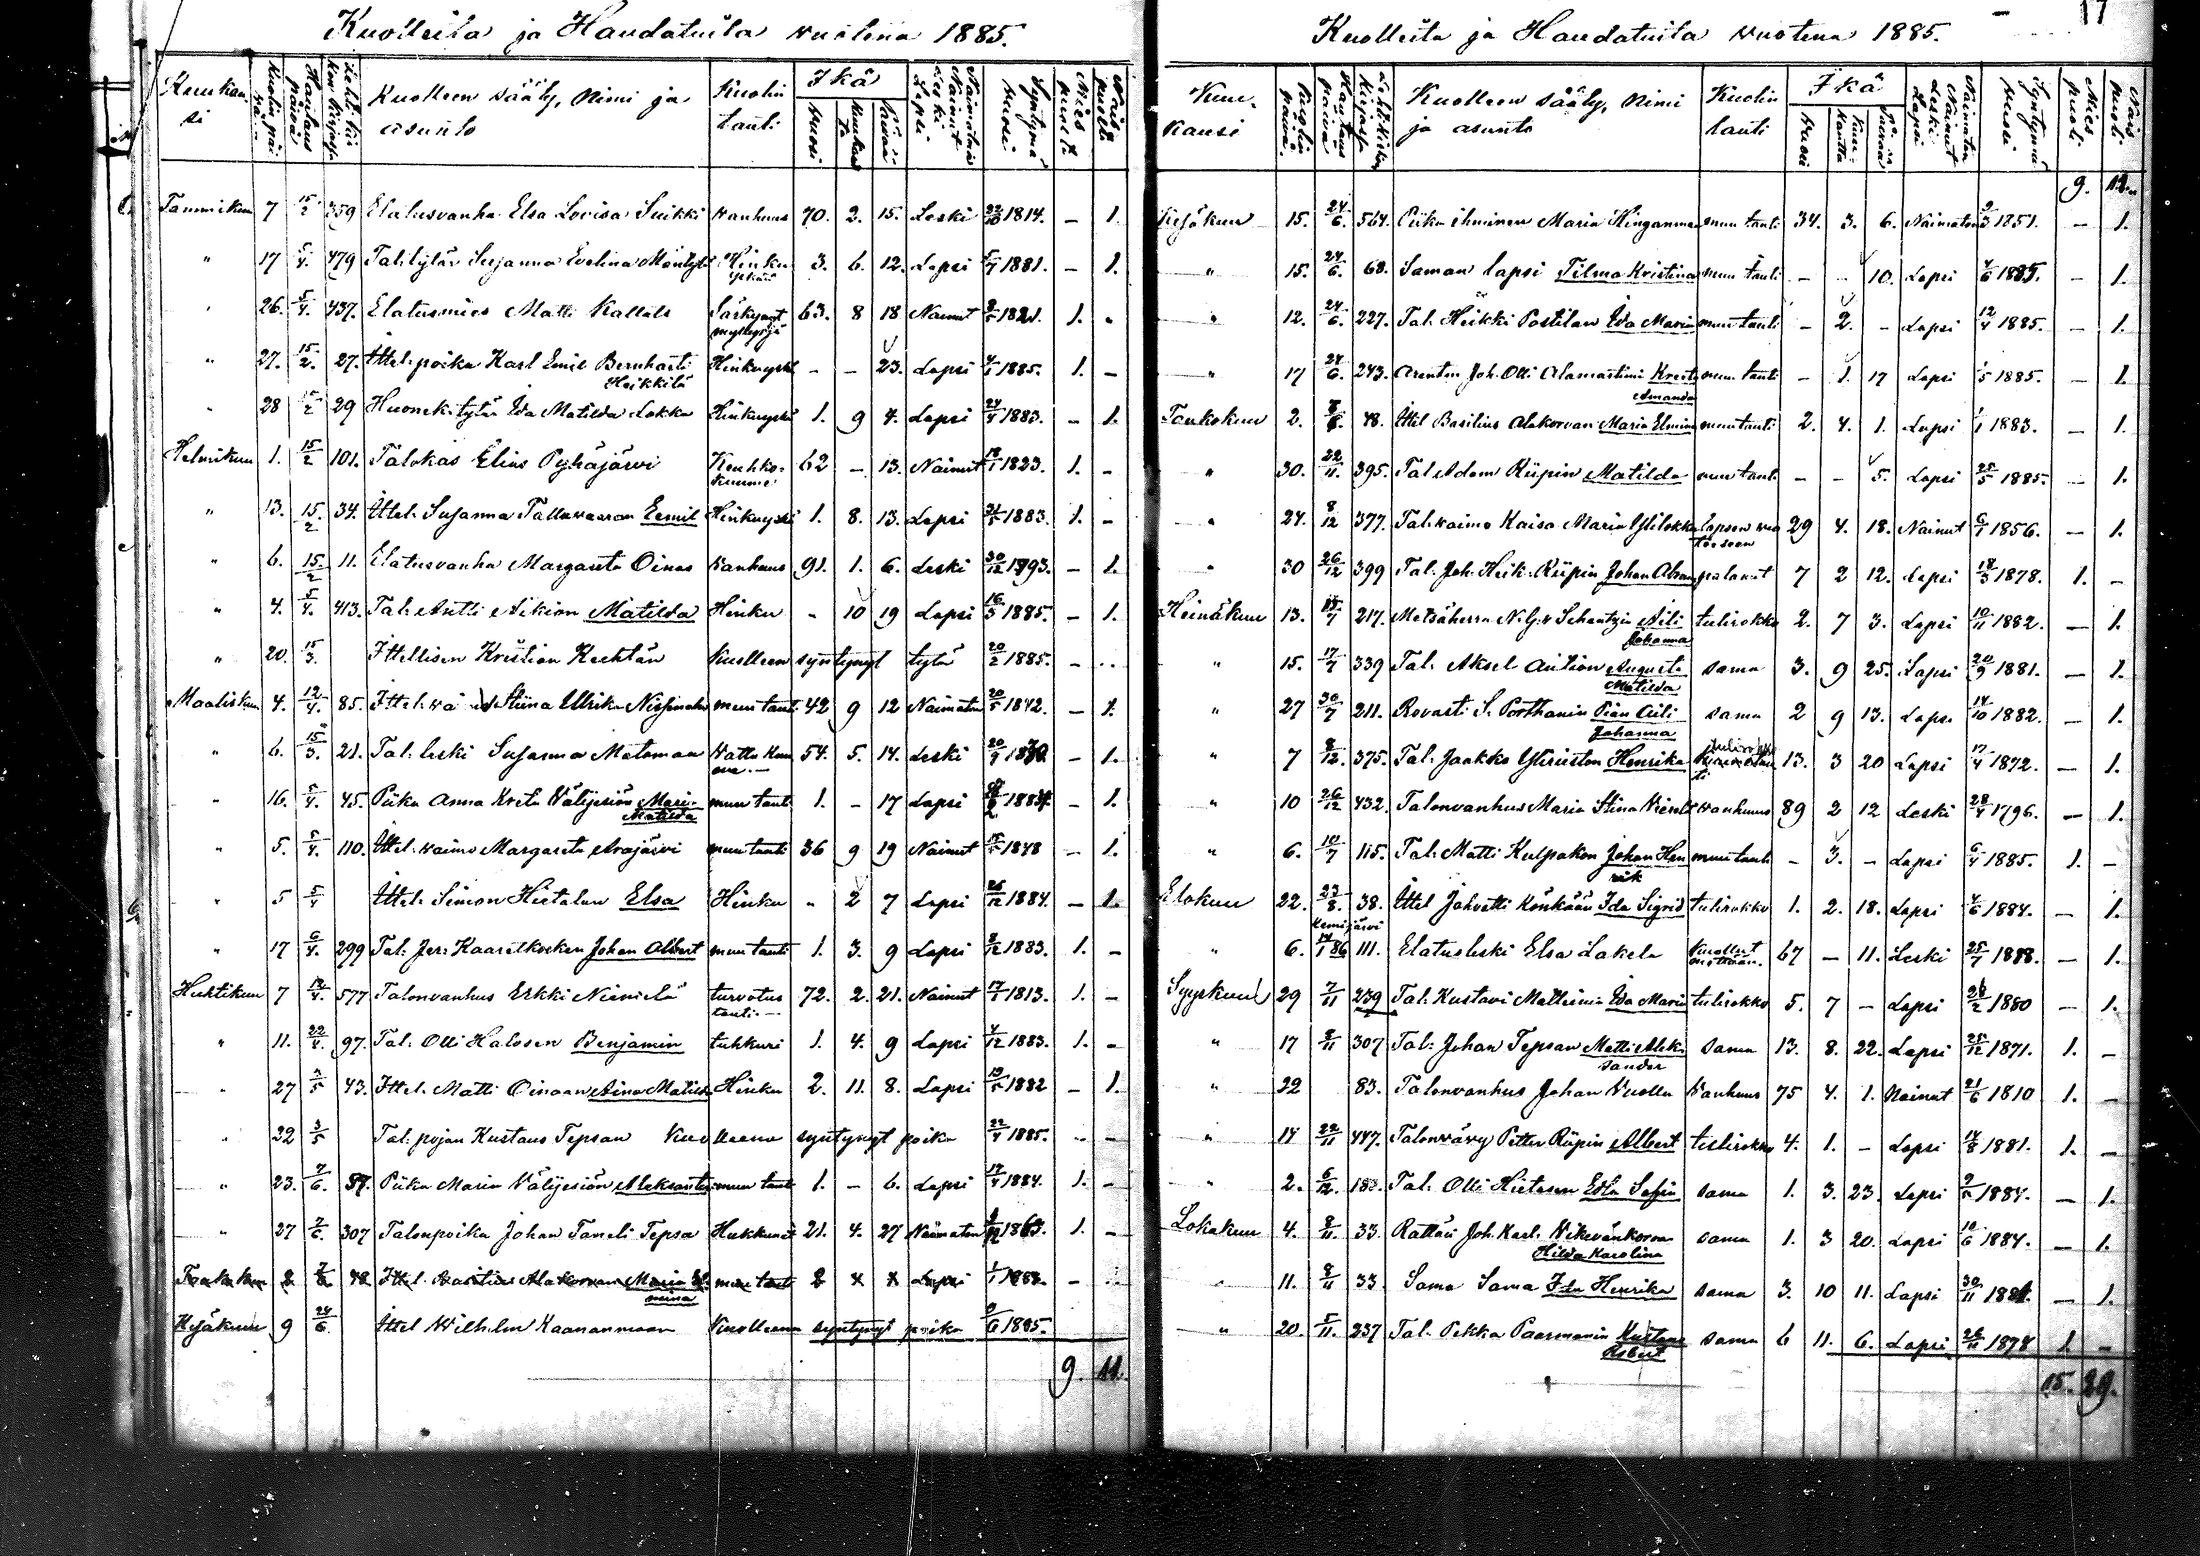 Kuolleita ja Haudatuita vuotena 1885.
Kuukau si | Kuolin päi vä | Hautaus päivä | Kuolleen sääty, Nimi ja asunto | Kuolin tauti | Ikä | Vuosi | Kuukaut ta | Päivää | Naimaton Nainut Leski Lapsi | Syntymä vuosi | Mies puoli | Nais puoli
Tammikuu 7 15/2 359 Elatusvanha Elsa Lovisa Suikki vanhuus 70. 2. 15. Leski 22/10 1814. – 1.
" 17 5/4. 479 Tal. tytär Susanna Evelina Mäntyl Hinku yskää 3. 6. 12. Lapsi 5/7 1881. – 1.
" 26. 5/4. 437. Elatusmies Matti Kallala 63. 8 18 Nainut 8/5 1821. 1. -
" 27. 15/2. 27. Ittel. poika Karl Emil Bernharti Heikkilä Hinkuyskä - - 23. Lapsi 4/1 1885. 1. –
" 28 15/2 29 Huonek. tytär Ida Matilda Lokka Hinkuyskä 1. 9 4. Lapsi 24/4 1883. – 1.
Helmikuu 1. 15/2 101. Talokas Elias Pyhäjärvi Keuhko- kuume 62 – 13. Nainut 18/1 1823. 1. –
" 13. 15/2 34. Ittel. Susanna Tallavaaran Eemil Hinkuyskä 1. 8. 13. Lapsi 31/5 1883. 1. –
" 6. 15/2 11. Elatusvanha Margareta Oinas Vanhuus 91. 1. 6. Leski 30/12 1793. – 1.
" 4. 5/4. 413. Tal. Antti Aikion Matilda Hinku - 10 19 Lapsi 16/3 1885. – 1.
" 20. 15/3. Ittellisen Kristian Kechtän Kuolleen syntynyt tytär 20/2 1885. – ..
Maalisku 4. 12/4. 85. Ittel. va Stiina Ulrika muu tauti 42 9 12 Naimaton 20/5 1842. – 1.
" 6. 15/3. 21. Tal. leski Susanna Matoman Vatta kuu me 54. 5. 14. Leski 20/9 1830 – 1.
" 16. 5/4. 45. Piika Anna Kreta Välijesiön Mari- Matilda muu tauti 1. - 17 Lapsi 1884 – 1.
" 5. 5/4. 110. Ittel. vaimo Margareta Arajärvi muu tauti 36 9 19 Nainut 1848 – 1.
" 5 5/4 Ittel. Simon Hietalan Elsa Hinku " 2 7 Lapsi 26/12 1884. – 1.
" 17 6/4. 299 Tal. Jer. Kaaretkosken Johan Albert muu tauti 1. 3. 9 Lapsi 8/12 1883. 1. –
Huhtikuu 7 12/4. 577 Talonvanhus Erkki Niemelä turvotus tauti 72. 2. 21. Nainut 17/1 1813. 1. –
" 11. 22/4. 97. Tal. Olli Halosen Benjamin tuhkuri 1. 4. 9 Lapsi 2/12 1883. 1. –
" 27 3/5 43. Ittel. Matti Oinaan Aina Matilda Hinku 2. 11. 8. Lapsi 19/5 1882 – 1.
" 22 3/5 Tal. pojan Kustaus Tepsan Kuolleena syntynyt poika 22/4 1885. .. –
" 23. 7/6. 57. Piika Maria Välijesiön Aleksanteri muu tauti 1. – 6. Lapsi 17/4 1884. 1. –
" 27 7/6. 307 Talonpoika Johan Taneli Tepsa Hukkunut 21. 4. 27 Naimaton 1863. 1. –
Toukokuu 2 7/6 48 Ittel. Basilius Alakorvan Maria El- miina muu tauti 2 4 1 Lapsi 1/1 1883. –
Kesäkuu 9 24/6. Ittel Wilhelm Kaananmaan Kuolleena syntynyt poika 9/6 1885.
9. 11.
17
Kuolleita ja Haudatuita vuotena 1885.
Kuu- kausi | Kuolin päivä | Hautaus päivä | Kuolleen sääty, Nimi ja asunto | Kuolin tauti | Ikä | Vuosi | Kuu- kautta | Päivää | Naimaton Nainut Leski Lapsi | Syntymä vuosi | Mies puoli | Nais puoli.
9. 12.
Kesäkuu 15. 24/6. 564. Piika ihminen Maria Hinganmaa muu tauti 34. 3. 6. Naimaton 9/3 1851. – 1.
" 15. 24/6. 68. Saman lapsi Tilma Kristina muu tauti - - 10. Lapsi 4/6 1885. – 1.
" 12. 24/6. 227. Tal. Heikki Postilan Ida Maria muu tauti – 2. – Lapsi 12/4 1885. – 1.
" 17 24/6. 243. Arentin Joh. Olli Alamartimi Kreeta Amanda muu tauti – 1. 17 Lapsi 1/5 1885. – 1.
Toukokuu 2. 7/6. 48. Ittel Basilius Alakorvan Maria Elmina muu tauti 2. 4. 1. Lapsi 1/1 1883. – 1.
" 30. 22/11. 395. Tal Adam Riipin Matilda muu tauti - - 5. Lapsi 25/5 1885. – 1.
" 24. 8/12 377. Tal. vaimo Kaisa Maria Ylilokka Lapsen vuo teeseen 29 4. 18. Nainut 6/1 1856. – 1.
" 30 26/12 399 Tal. Joh. Heik. Riipin Johan Abram palanut 7 2 12. Lapsi 18/3 1878. 1. –
Heinäkuu 13. 17/7 217. Metsäherra N. G. v Schantzin Aili Johanna tulirokko 2. 7 3. Lapsi 10/11 1882. – 1.
" 15. 17/7 339 Tal. Aksel Aution Augusta Matilda sama 3. 9 25. Lapsi 20/9 1881. – 1.
" 27 30/7 211. Rovasti S. Porthanin Pian Aili Johanna sama 2 9 13. Lapsi 14/10 1882. – 1.
" 7 8/12. 375. Tal. Jaakko Yliriiston Henrika tulirokko 13. 3 20 Lapsi 17/4 1872. – 1.
" 10 26/12 432. Talonvanhus Maria Stina Vierelä vanhuus 89 2 12 Leski 28/4 1796. – 1.
" 6. 10/7 115. Tal. Matti Kulpakon Johan Hen rik muu tauti – 3. – Lapsi 6/4 1885. 1. –
Elokuu 22. 23/8. 38. Ittel Johvetti Könkään Ida Sigrid tulirokko 1. 2. 18. Lapsi 4/6 1884. – 1.
Kemijärvi
" 6. 1 86 111. Elatusleski Elsa Lakela Kuollut mettään. 67 – 11. Leski 25/7 1818. – 1.
Syyskuu 29 7/11 239 Tal. Kustavi Mattinin Ida Maria tulirokko 5. 7 – Lapsi 28/2 1880 – 1.
" 17 8/11 307 Tal. Johan Tepsan Matti Alek- sander sama 13. 8. 22. Lapsi 25/12 1871. 1. –
" 22 83. Talonvanhus Johan Vuollu Vanhuus 75 4. 1. Nainut 21/6 1810 1. –
" 14 22/11 447. Talonvävy Petter Riipin Albert tulirokko 4. 1. – Lapsi 14/8 1881. 1. –
" 2. 6/12. 183. Tal. Olli Hietasen Edla Sofia sama 1. 3. 23. Lapsi 1884. – 1.
Lokakuu 4. 8/11. 33. Rättäri Joh. Karl. Vikevänkorvan Hilda Karolina sama 1. 3 20. Lapsi 1884. – 1.
" 11. 8/11 33. Sama Sama Ida Henrika sama 3. 10 11. Lapsi 30/11 1881. – 1.
" 20. 8/11. 237 Tal. Pekka Paarmanin Kustava Robert sama 6 11. 6. Lapsi 26/11 1878 1. –
15. 29.